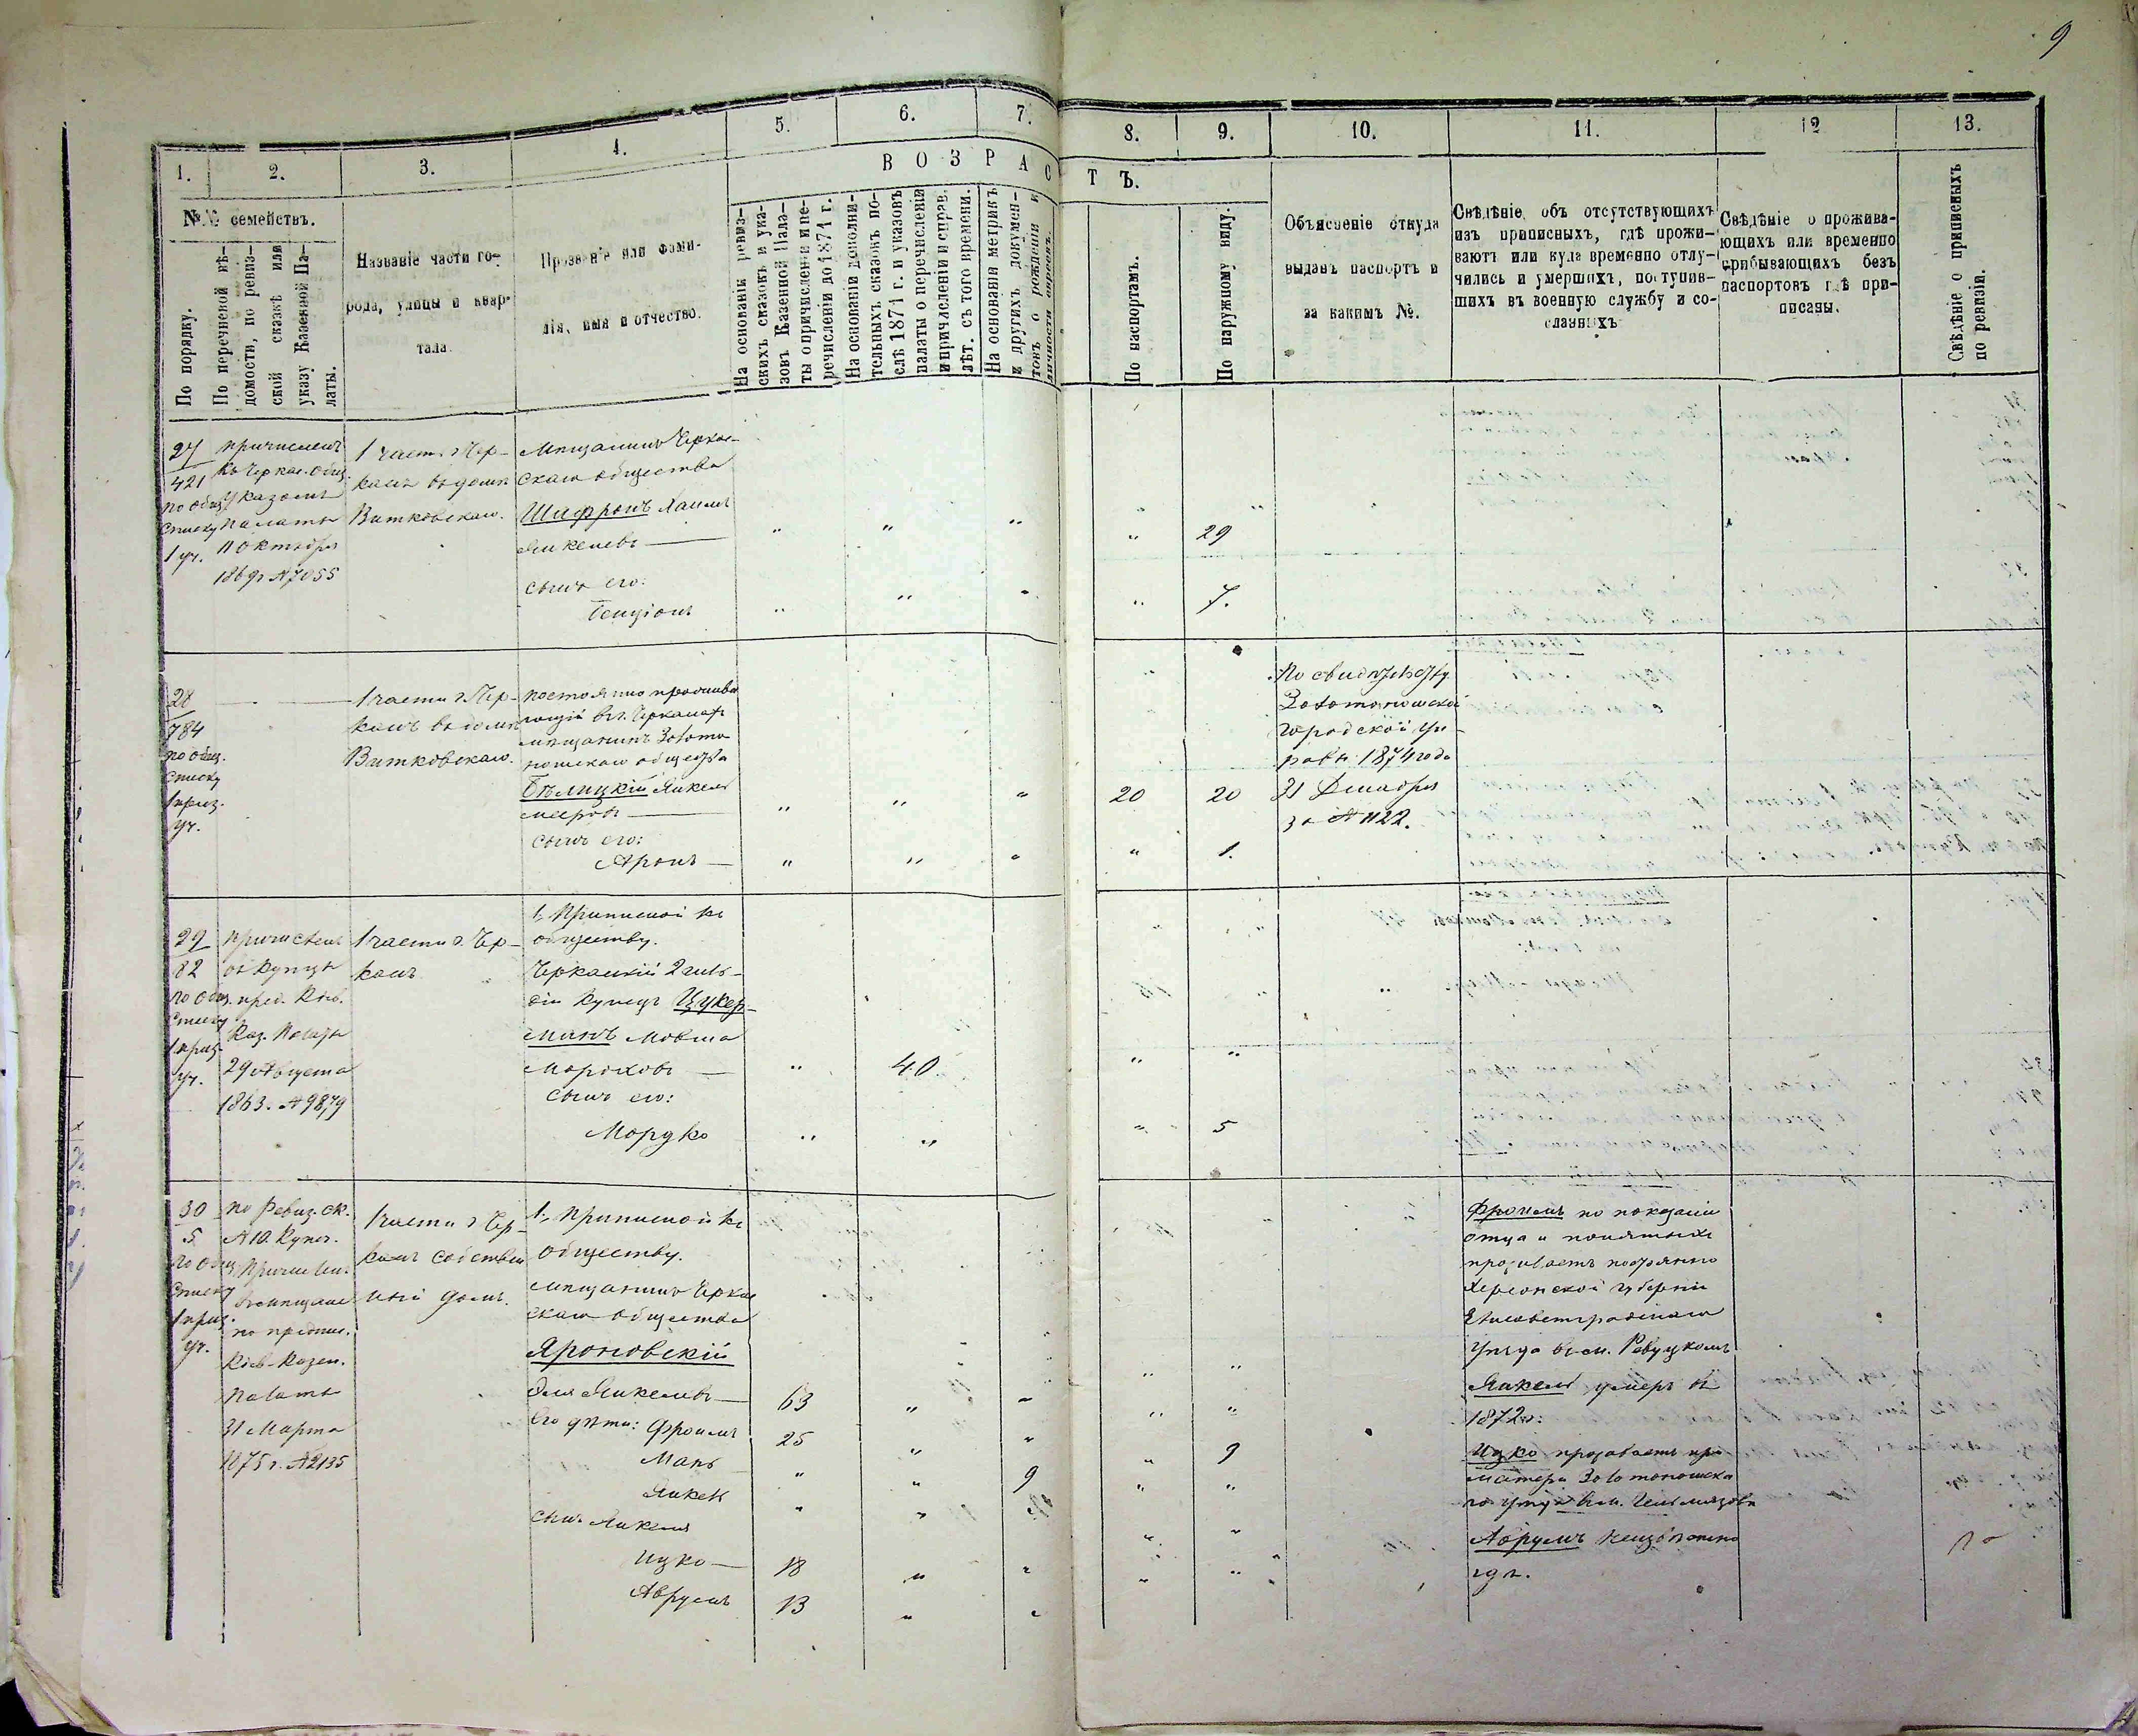 9
1.
2.
3.
4.
5.
6.
7.
8.
9.
10.
11.
12
13.
ВОЗРАСТЪ.
№№ семействъ.
По порядку.
По перечневой вѣ-
домости, по ревиз-
ской сказкѣ или
указу Казенной Па-
латы.
Названіе части го-
рода, улицы и квар-
тала.
Прозваніе или фами-
лія, имя и отчество.
На основаніи ревиз-
скихъ сказокъ и ука-
зовъ Казенной Пала-
ты о причисленіи и пе-
речисленіи до 1871 г.
На основаніи дополни-
тельныхъ сказокъ по-
слѣ 1871 г. и указовъ
палаты о перечисленіи
и причисленіи и справ.
лѣт. съ того времени.
На основаніи метрикъ
и другихъ докумен-
товъ о рожденіи и
личности евреевъ.
По паспортамъ.
По наружному виду.
Объясненіе откуда
выданъ паспортъ и
за какимъ №.
Свѣдѣніе объ отсутствующихъ
изъ приписныхъ, гдѣ прожи-
ваютъ или куда временно отлу-
чились и умершихъ, поступив-
шихъ въ военную службу и со-
сланныхъ
Свѣдѣніе о прожива-
ющихъ или временно
прибывающихъ безъ
паспортовъ гдѣ при-
писаны.
Свѣдѣніе о приписныхъ
по ревизіи.
27
421
по общ.
списку
1 уч.
причисленъ
къ Черкас. общ.
Указомъ
Палаты
11 октября
1869 г № 7055
1 части г. Чер-
касъ въ домѣ
Витковскаго.
Мѣщанинъ Черкас-
скаго общества
Шафронъ Хаимъ
Янкелевъ — " " " " 29
сынъ его:
Бенціонъ " " " " 7.
28
784
по общ.
списку
1 приз.
уч.
1 части г. Чер-
касъ въ домѣ
Витковскаго.
постоянно прожива
ющій въ г. Черкасахъ
мѣщанинъ Золото
ношскаго общества
Бѣлицкій Янкель
Мееровъ — " " " 20 20
сынъ его:
Аронъ — " " " " 1.
По свидѣтельству
Золотоношской
городской Уп-
равы 1874 года
31 Декабря
за № 1122.
29
82
по общ.
списку
1 приз.
уч.
причисленъ
въ купцы
пред. Кіев.
Каз. Палаты
29 Августа
1863. № 9879
1 части г. Чер-
касъ
1, Приписной къ
обществу.
Черкаскій 2 гиль-
діи купецъ Цукер-
манъ Мовша
Мороховъ — " 40 " "
сынъ его:
Мордко " " " 5
30
5
по общ.
списку
1 приз.
уч.
по Ревиз. ск.
№ 10. Купеч.
Причислен.
въ мѣщане
по предпис.
Кіев. Казен.
Палаты
31 Марта
1875 г. № 2135
1 части г. Чер-
касъ собствен
ный домъ.
1, Приписной къ
обществу.
Мѣщанинъ Черкас
скаго общества
Яроновскій
Янкелевъ — 63 " " " "
Его дѣти: Фроимъ 25 " " " "
Мань " " " " 9
Янкель " " 9 " "
сынъ Янкеля
Ицко — 18 " " " "
Аврумъ 13 " " " "
Фроимъ по показанію
отца и понятыхъ
проживаетъ постоянно
Херсонской губерніи
Елисаветградскаго
Уѣзда въ м. Ревуцкомъ
Янкель умеръ въ
1872 г.:
Ицко проживаетъ при
матери Золотоношска
го уѣзда въ м. Гельмязовѣ
Аврумъ неизвѣстно
гдѣ.